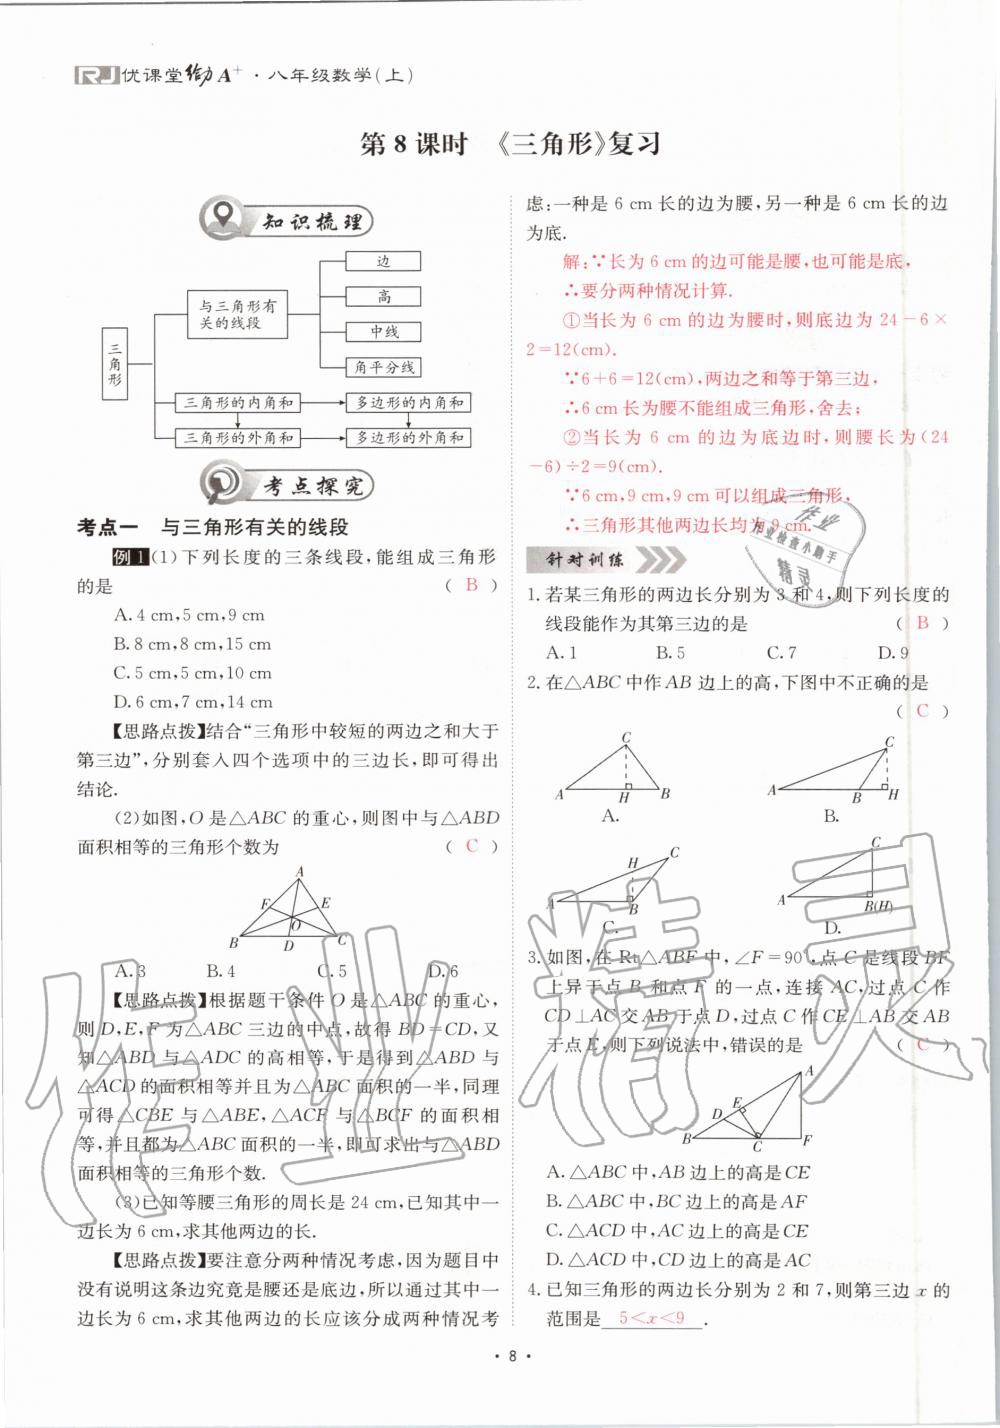 RJ 优课堂给力A⁺·八年级数学(上)
第8课时 《三角形》复习
知识梳理
三角形
与三角形有关的线段
边
高
中线
角平分线
三角形的内角和
多边形的内角和
三角形的外角和
多边形的外角和
考点探究
考点一 与三角形有关的线段
例1 (1)下列长度的三条线段,能组成三角形
的是 ( B )
A.4 cm,5 cm,9 cm
B.8 cm,8 cm,15 cm
C.5 cm,5 cm,10 cm
D.6 cm,7 cm,14 cm
【思路点拨】结合“三角形中较短的两边之和大于
第三边”,分别套入四个选项中的三边长,即可得出
结论.
(2)如图,O是△ABC的重心,则图中与△ABD
面积相等的三角形个数为 ( C )
A
F E
O
B D C
A.3 B.4 C.5 D.6
【思路点拨】根据题干条件O是△ABC的重心,
则D,E,F为△ABC三边的中点,故得BD=CD,又
知△ABD与△ADC的高相等,于是得到△ABD与
△ACD的面积相等并且为△ABC面积的一半,同理
可得△CBE与△ABE,△ACF与△BCF的面积相
等,并且都为△ABC面积的一半,即可求出与△ABD
面积相等的三角形个数.
(3)已知等腰三角形的周长是24 cm,已知其中一
边长为6 cm,求其他两边的长.
【思路点拨】要注意分两种情况考虑,因为题目中
没有说明这条边究竟是腰还是底边,所以可能其中一
边长为6 cm,求其他两边的长应该分成两种情况考
虑:一种是6 cm长的边为腰,另一种是6 cm长的边
为底.
解:∵长为6 cm的边可能是腰,也可能是底,
∴要分两种情况计算.
①当长为6 cm的边为腰时,则底边为24-6×
2=12(cm).
∵6+6=12(cm),两边之和等于第三边,
∴6 cm长为腰不能组成三角形,舍去;
②当长为6 cm的边为底边时,则腰长为(24
-6)÷2=9(cm).
∵6 cm,9 cm,9 cm可以组成三角形,
∴三角形其他两边长均为9 cm.
作业
作业检查小助手
精灵
针对训练
1.若某三角形的两边长分别为3和4,则下列长度的
线段能作为其第三边的是 ( B )
A.1 B.5 C.7 D.9
2.在△ABC中作AB边上的高,下图中不正确的是
( C )
C
A H B
A.
C
A B H
B.
H C
A B
C.
C
A B(H)
D.
3.如图,在Rt△ABF中,∠F=90°,点C是线段BF
上异于点B和点F的一点,连接AC,过点C作
CD⊥AC交AB于点D,过点C作CE⊥AB交AB
于点E,则下列说法中,错误的是 ( C )
A
E
D
B C F
A.△ABC中,AB边上的高是CE
B.△ABC中,BC边上的高是AF
C.△ACD中,AC边上的高是CE
D.△ACD中,CD边上的高是AC
4.已知三角形的两边长分别为2和7,则第三边x的
范围是 5<x<9 .
作业精灵
·8·